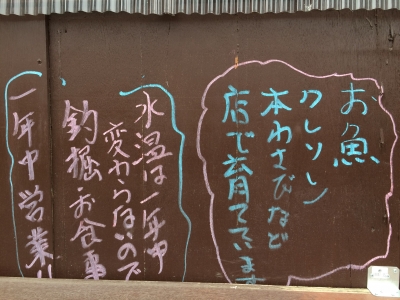 お魚
クレソン
本わさびなど
店で育てています
水温は一年中
変わらないので
釣堀・お食事
一年中営業!!